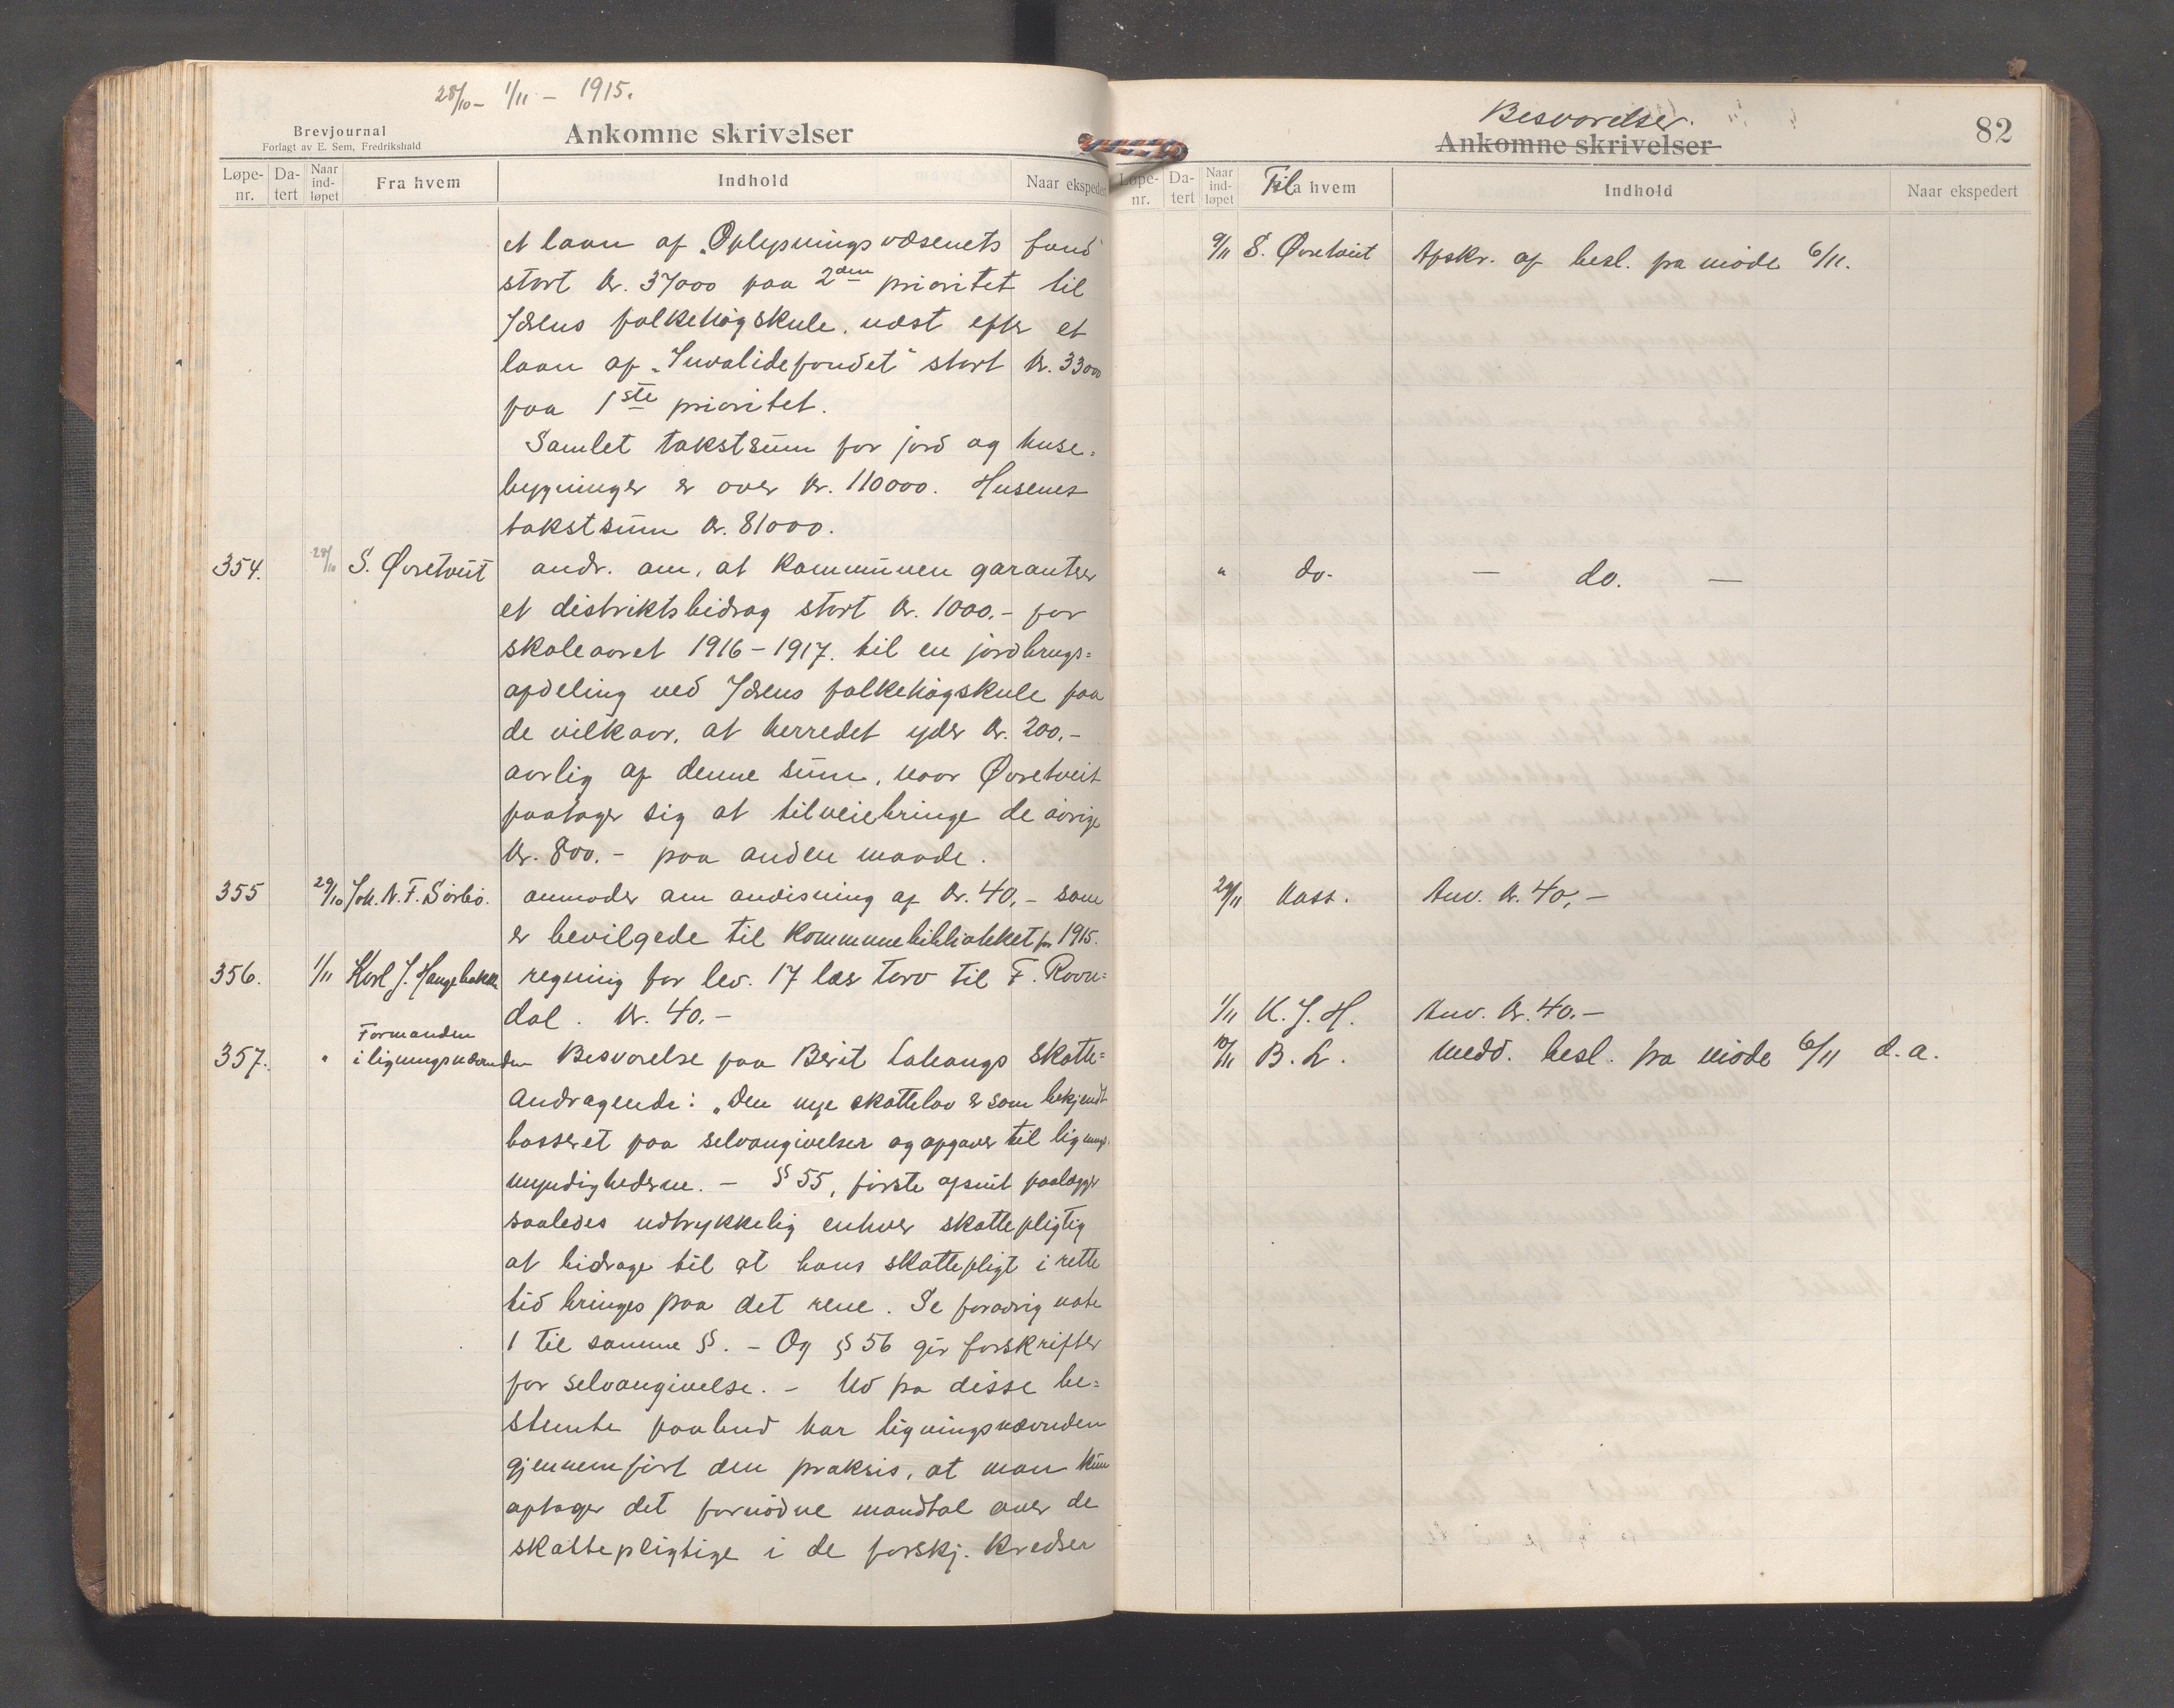 28/10 – 1/11 – 1915.
Brevjournal
Forlagt av E. Sem, Fredrikshald
Ankomne skrivelser
Løpe-nr. Da-tert Naar ind-løpet Fra hvem Indhold Naar ekspedert
et laan af „Oplysningsvæsenets fond
stort kr. 37000 paa 2den prioritet til
Jærens folkehøgskule, næst efter et
laan af „Invalidefondet" stort kr. 33000
paa 1ste prioritet.
Samlet takstsum for jord og huse=
bygninger er over kr. 110000. Husenes
takstsum kr. 81000.
354. 28/10 S. Øvretveit andr. om, at kommunen garanterer
et distriktsbidrag stort kr. 1000.– for
skoleaaret 1916–1917. til en jordbrugs=
afdeling ved Jærens folkehøgskule paa
de vilkaar, at herredet yder kr. 200.–
aarlig af denne sum, naar Øvretveit
paatager sig at tilveiebringe de øvrige
kr. 800.– paa anden maade.
355 29/10 Joh. N. F. Sørbø. anmoder om anvisning af kr. 40,– som
er bevilgede til kommunebibliotheket for 1915.
356. 1/11 Karl J. Haugebakke regning for lev. 17 læs torv til F. Ravn=
dal. kr. 40.–
357. " Formanden
i ligningsnævnden Besvarelse paa Berit Laleangs skatte=
andragende: „Den nye skattelov er som bekjendt
basseret paa selvangivelser og opgaver til lignings-
myndighederne. – § 55, første afsnit paalægger
saaledes udtrykkelig enhver skattepligtig
at bidrage til at hans skattepligt i rette
tid bringes paa det rene. Se forøvrig note
1 til samme §. – Og § 56 gir forskrifter
for selvangivelse. – Ud fra disse be=
stemte paabud har ligningsnævnden
gjennemført den praksis, at man kun
optager det fornødne mandtal over de
skattepligtige i de forskj. kredser
Besvarelser.
Ankomne skrivelser
82
Løpe-nr. Da-tert Naar ind-løpet Til hvem Indhold Naar ekspedert
9/11 S. Øvretveit Afskr. af besl. fra møde 6/11.
" do. — do. —
29/11 Kass. Anv. kr. 40,–
1/11 K. J. H. Anv. kr. 40.–
10/11 B. L. Medd. besl. fra møde 6/11 d.a.